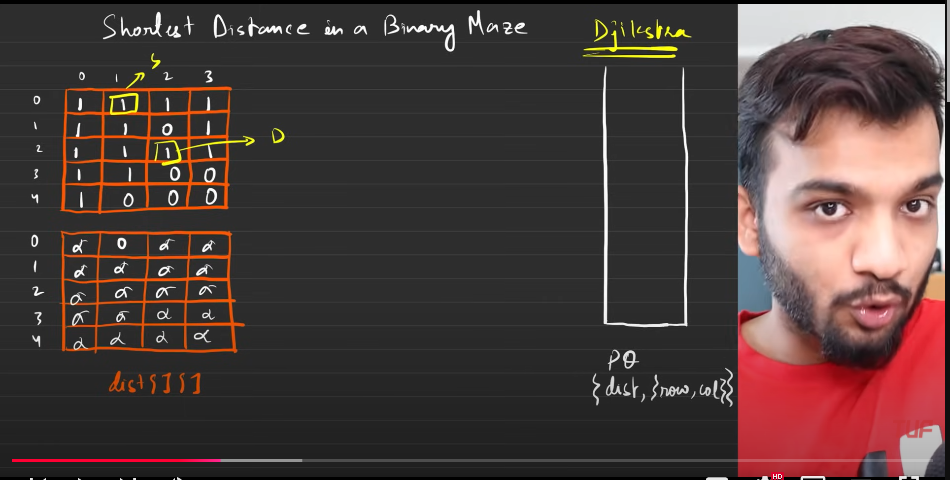 Shortest Distance in a Binary Maze
Djikstra
S
0 1 2 3
0 1 1 1 1
1 1 1 0 1
2 1 1 1 1
D
3 1 1 0 0
4 1 0 0 0
0 α 0 α α
1 α α α α
2 α α α α
3 α α α α
4 α α α α
dist[][]
PQ
{dist, {row, col}}
HD